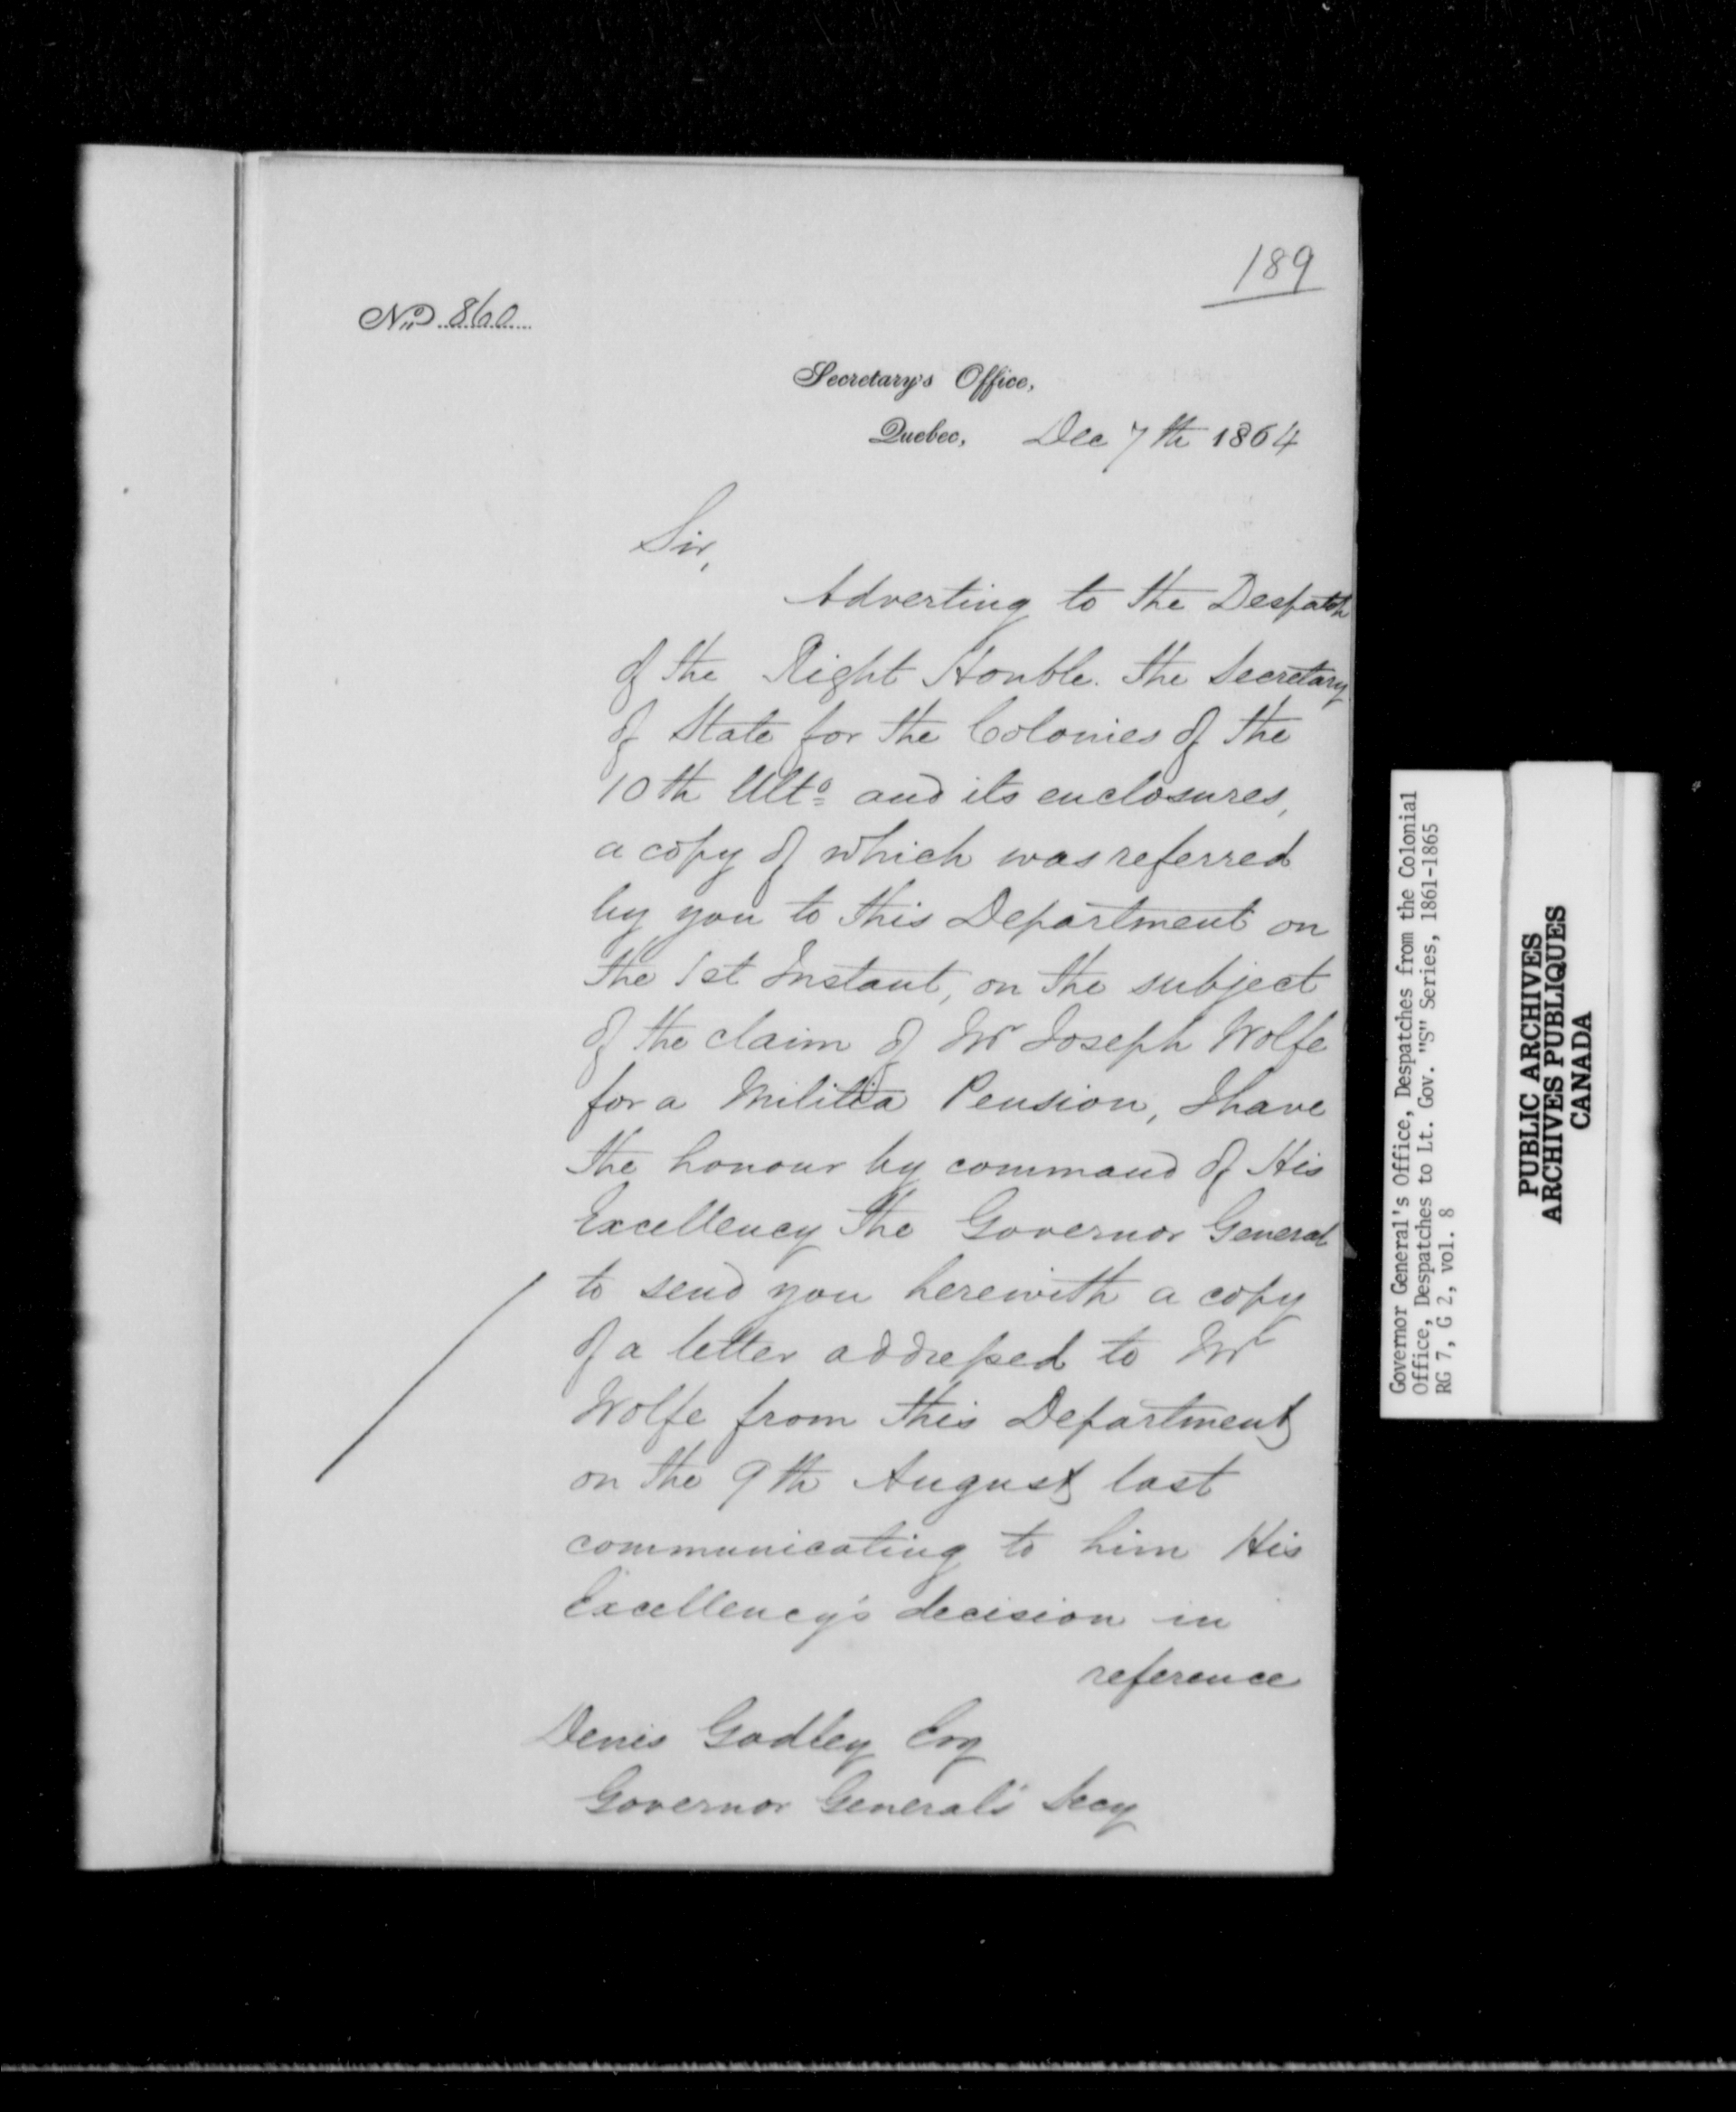 189
No. 860
Secretary's Office,
Quebec, Dec 7th 1864
Sir,
Adverting to the Despatch
of the Right Honble. the Secretary
of State for the Colonies of the
10th Ulto and its enclosures,
a copy of which was referred
by you to this Department on
the 1st Instant, on the subject
of the claim of Mr Joseph Wolfe
for a Militia Pension, I have
the honour by command of His
Excellency the Governor General
to send you herewith a copy
of a letter addressed to Mr
Wolfe from this Department
on the 9th August last
communicating to him His
Excellency's decision in
reference
Denis Godley Esq
Governor General's Secy
Governor General's Office, Despatches from the Colonial
Office, Despatches to Lt. Gov. "S" Series, 1861-1865
RG 7, G 2, vol. 8
PUBLIC ARCHIVES
ARCHIVES PUBLIQUES
CANADA